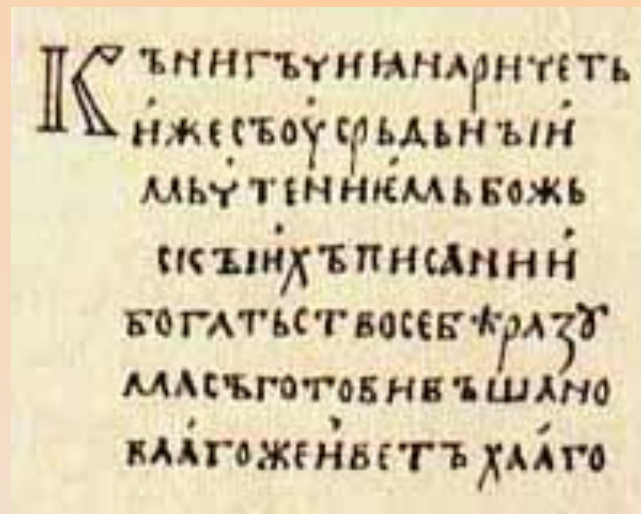 КЪНИГЪЧИІѦНАРИЧЕТЬ
И҆ЖЕСЪОУ҆СРЬДЬНЪІИ҆
МЬЧТЕНИѤМЬБОЖЬ
СКЪІИХЪПИСАНИИ҆
БОГАТЬСТВОСЕБѢРАЗꙊ
МАСЪГОТОВИВЪШАНО
ВАА҆ГОЖЕИ҆ВЕТЪХАА҆ГО